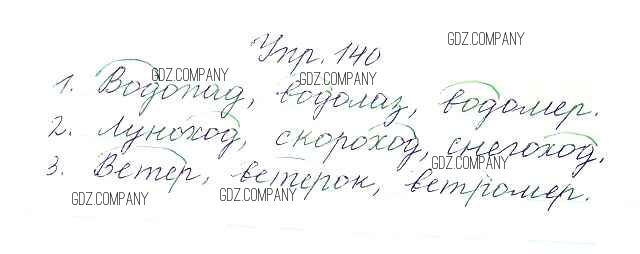 Упр. 140
GDZ.COMPANY
GDZ.COMPANY
GDZ.COMPANY
1. Водопад, водолаз, водомер.
2. Луноход, скороход, снегоход.
GDZ.COMPANY
3. Ветер, ветерок, ветромер.
GDZ.COMPANY
GDZ.COMPANY